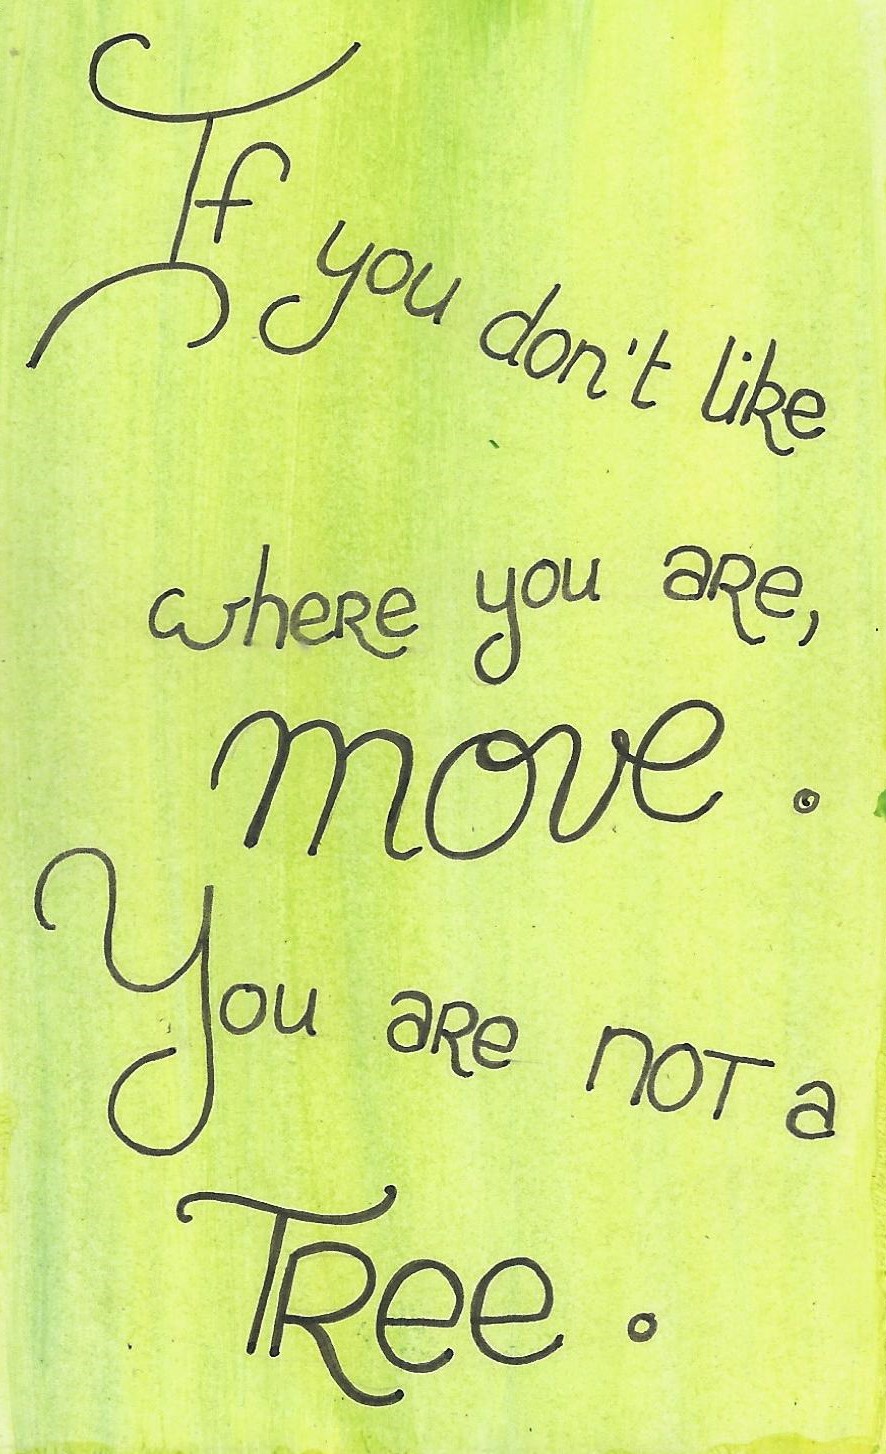 If you don't like
where you are,
move.
You are not a
Tree.